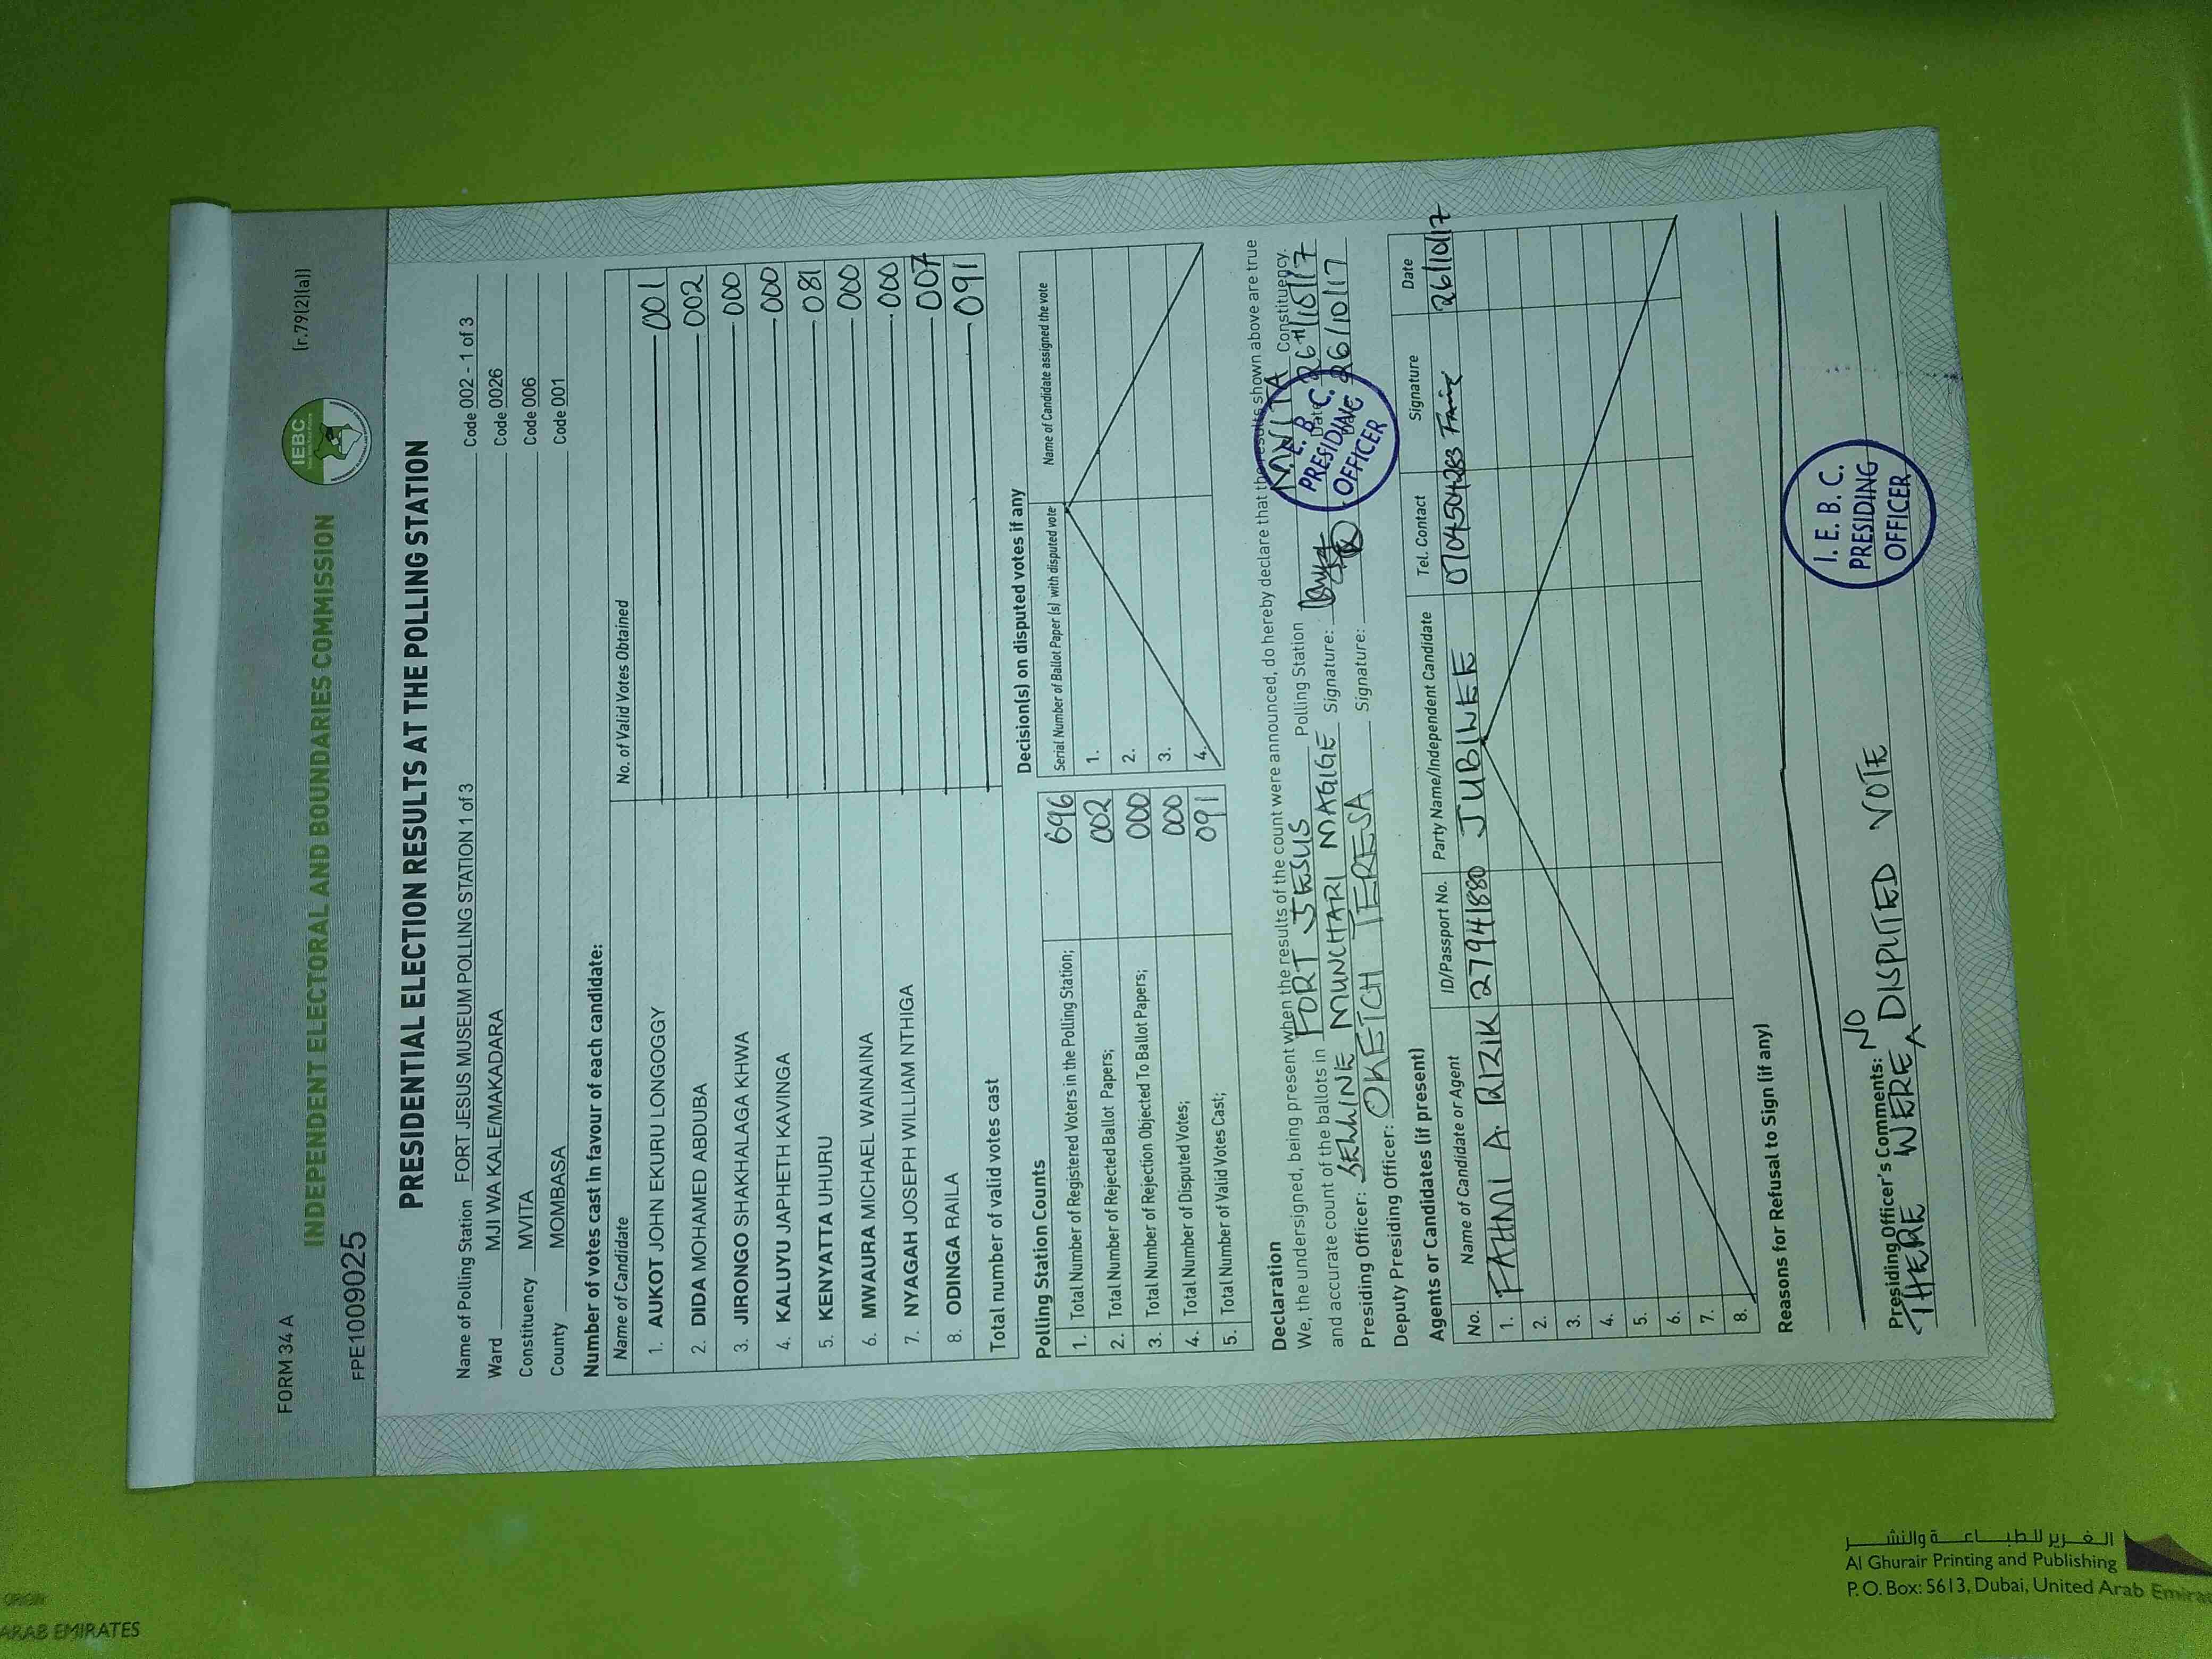 FORM 34 A
(r.79(2)(a))
IEBC
INDEPENDENT ELECTORAL AND BOUNDARIES COMMISSION
FPE1009025
PRESIDENTIAL ELECTION RESULTS AT THE POLLING STATION
Name of Polling Station FORT JESUS MUSEUM POLLING STATION 1 of 3 Code 002 - 1 of 3
Ward MJI WA KALE/MAKADARA Code 0026
Constituency MVITA Code 006
County MOMBASA Code 001
Number of votes cast in favour of each candidate:
Name of Candidate No. of Valid Votes Obtained
1. AUKOT JOHN EKURU LONGOGGY 001
2. DIDA MOHAMED ABDUBA 002
3. JIRONGO SHAKHALAGA KHWA 000
4. KALUYU JAPHETH KAVINGA 000
5. KENYATTA UHURU 081
6. MWAURA MICHAEL WAINAINA 000
7. NYAGAH JOSEPH WILLIAM NTHIGA 000
8. ODINGA RAILA 007
Total number of valid votes cast 091
Polling Station Counts
1. Total Number of Registered Voters in the Polling Station; 696
2. Total Number of Rejected Ballot Papers; 002
3. Total Number of Rejection Objected To Ballot Papers; 000
4. Total Number of Disputed Votes; 000
5. Total Number of Valid Votes Cast; 091
Decision(s) on disputed votes if any
Serial Number of Ballot Paper (s) with disputed vote Name of Candidate assigned the vote
1.
2.
3.
4.
Declaration
We, the undersigned, being present when the results of the count were announced, do hereby declare that the results shown above are true
and accurate count of the ballots in FORT JESUS Polling Station MVITA Constituency.
Presiding Officer: MUNCHARI MAGIGE Signature: Date 26TH/10/17
Deputy Presiding Officer: OKETCH TERESA Signature: Date 26/10/17
I. E. B. C.
PRESIDING
OFFICER
Agents or Candidates (if present)
No. Name of Candidate or Agent ID/Passport No. Party Name/Independent Candidate Tel. Contact Signature Date
1. FAHMI A. RIZIK 27941880 JUBILEE 0704504283 26/10/17
2.
3.
4.
5.
6.
7.
8.
Reasons for Refusal to Sign (if any)
Presiding Officer's Comments:
NO
THERE WERE ^ DISPUTED VOTE
I. E. B. C.
PRESIDING
OFFICER
ORIGIN
ARAB EMIRATES
الغرير للطباعة والنشر
Al Ghurair Printing and Publishing
P. O. Box: 5613, Dubai, United Arab Emira